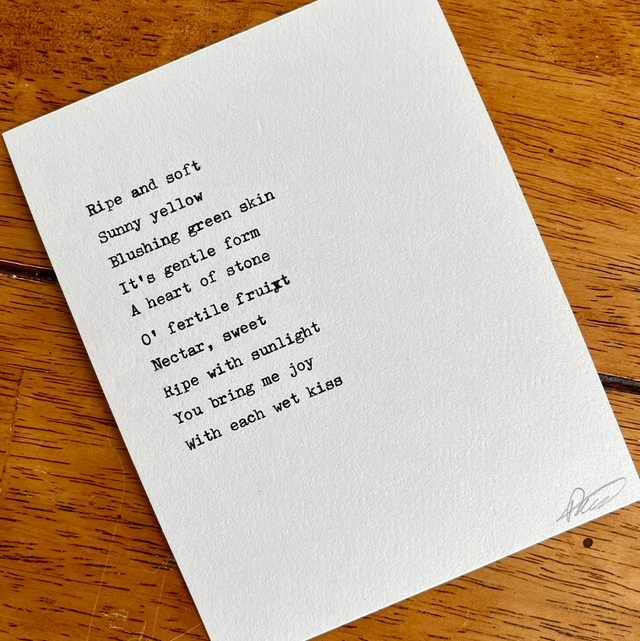 Ripe and soft
Sunny yellow
Blushing green skin
It's gentle form
A heart of stone
O' fertile fruit
Nectar, sweet
Ripe with sunlight
You bring me joy
With each wet kiss